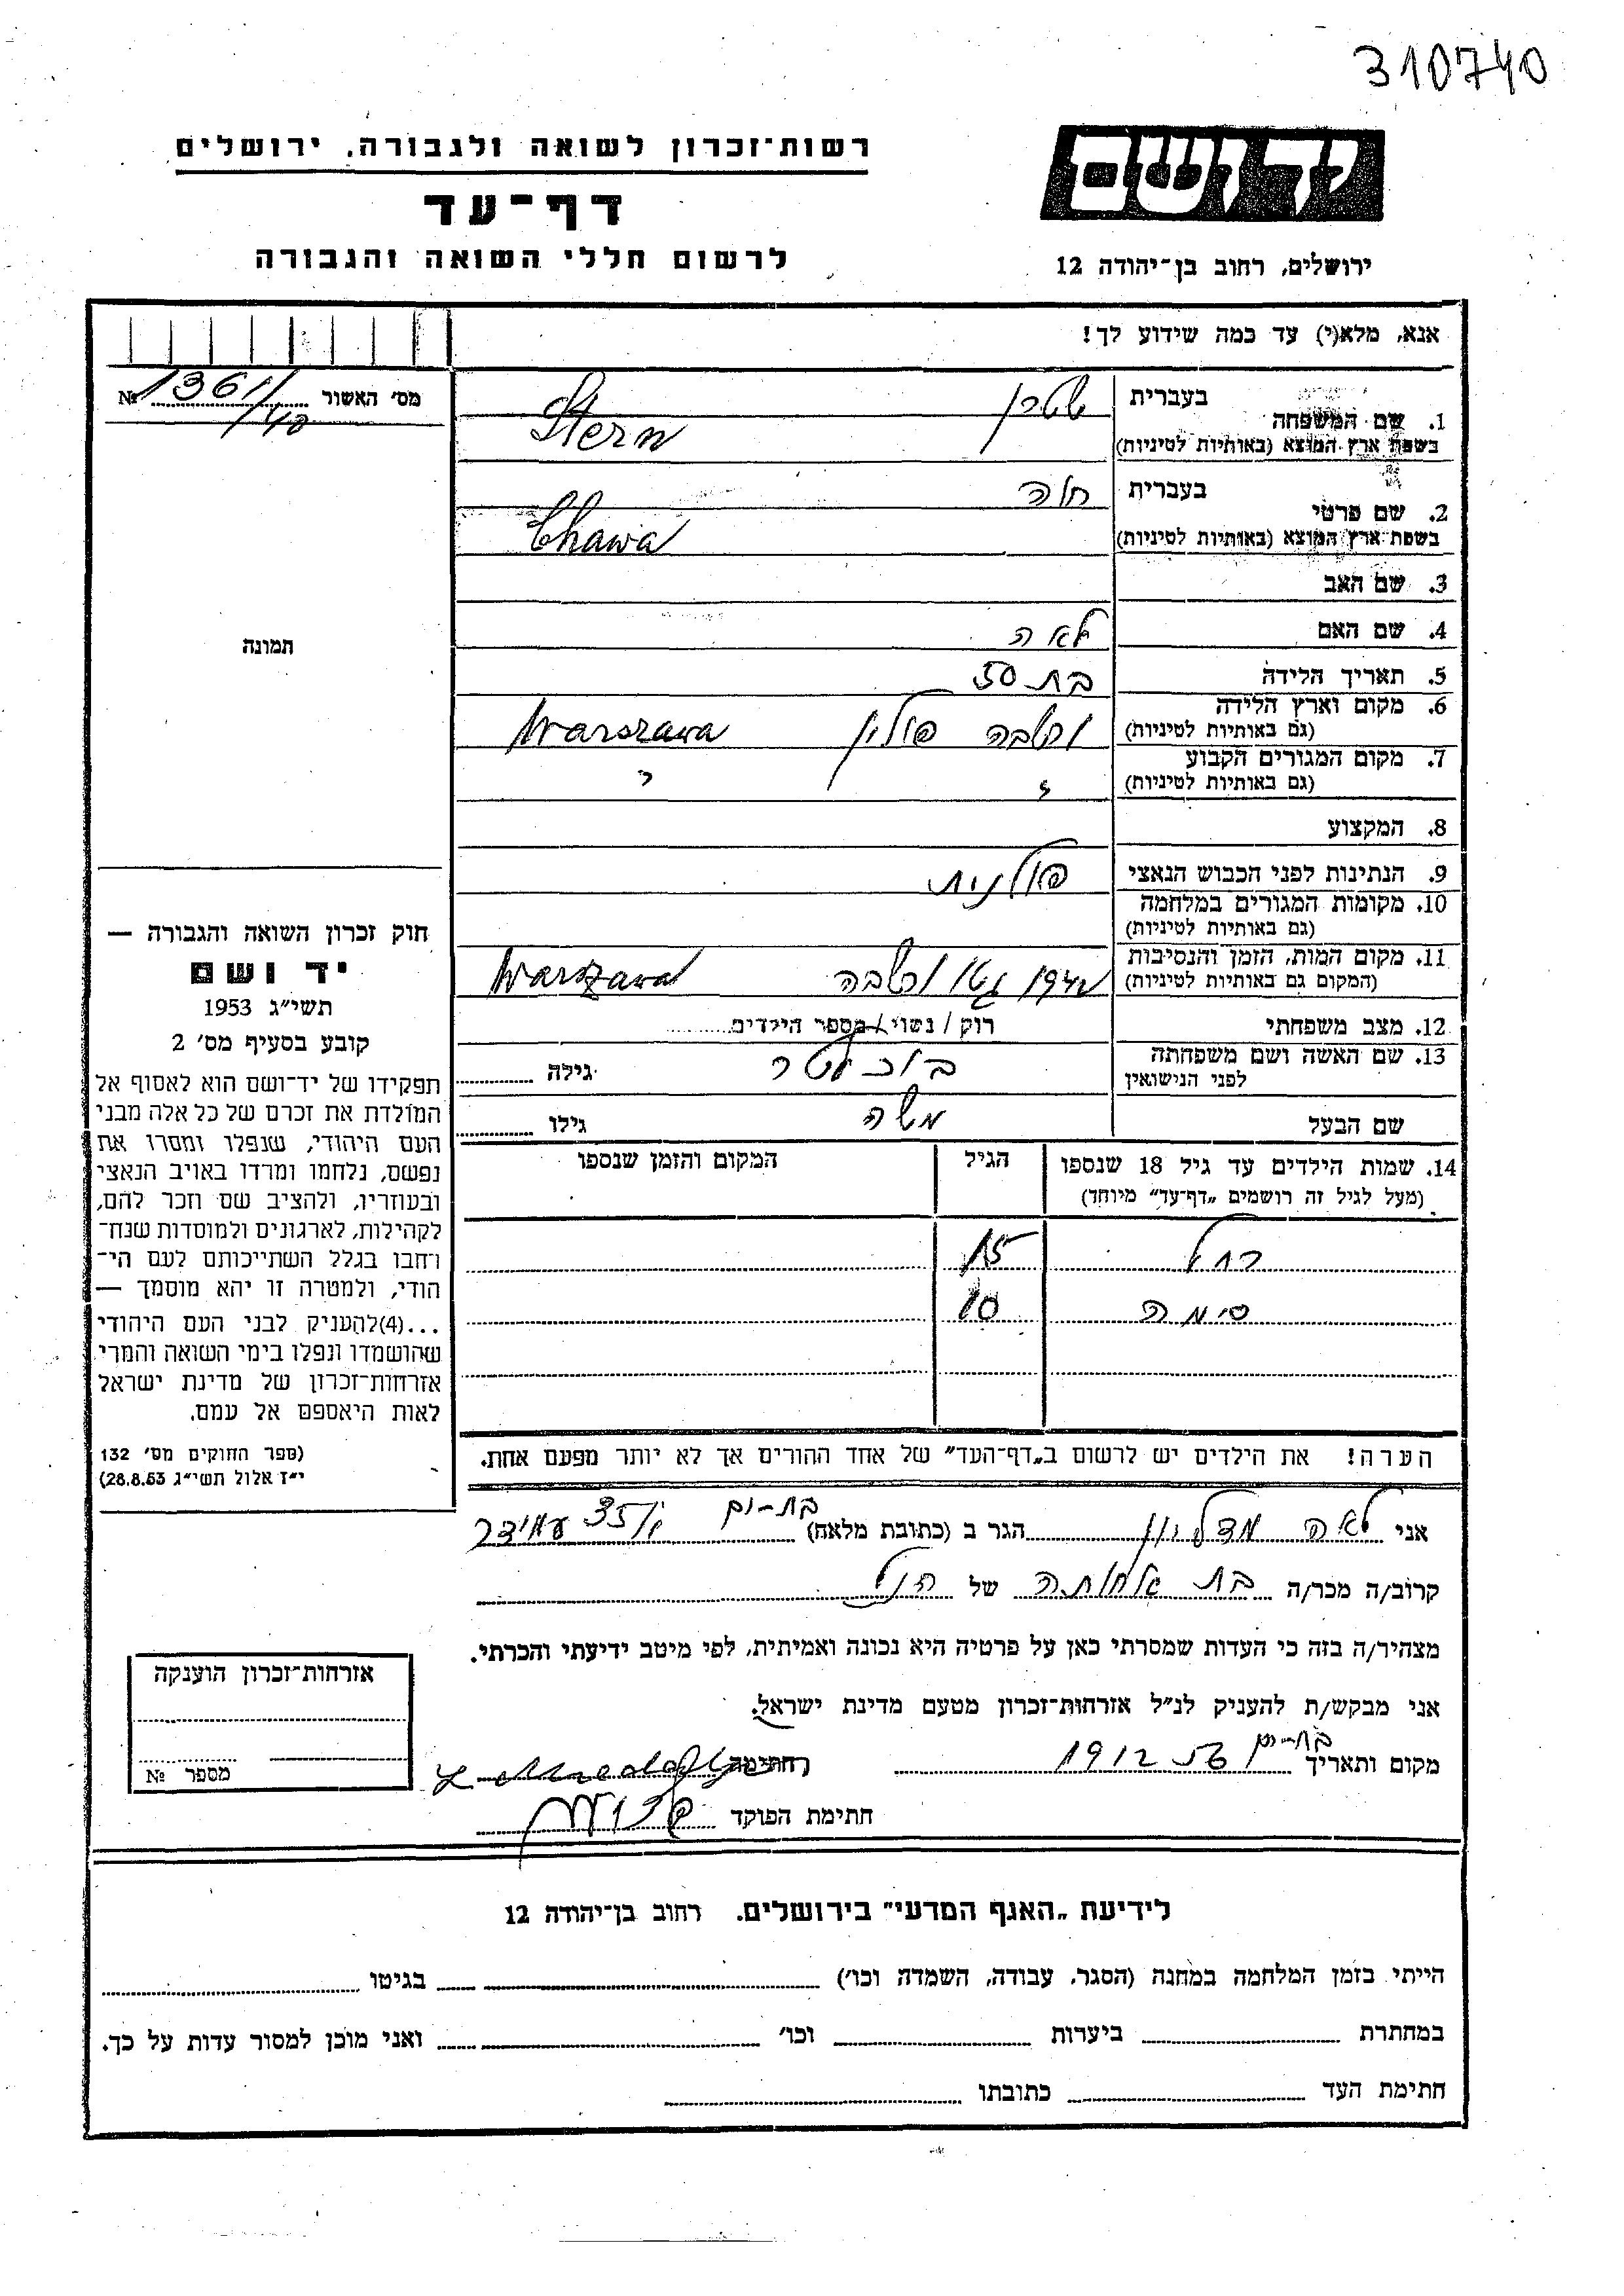 310740
רשות־זכרון לשואה ולגבורה, ירושלים
דף־עד
לרשום חללי השואה והגבורה
ידושם
ירושלים, רחוב בן־יהודה 12
אנא, מלא(י) עד כמה שידוע לך!
מס' האשור № 1361/40
1. שם המשפחה בעברית שטרן
בשפת ארץ המוצא (באותיות לטיניות) Stern
2. שם פרטי בעברית חוה
בשפת ארץ המוצא (באותיות לטיניות) Chawa
3. שם האב
4. שם האם לאה
תמונה
5. תאריך הלידה בת 50
6. מקום וארץ הלידה ורשבה פולין Warszawa
(גם באותיות לטיניות)
7. מקום המגורים הקבוע
(גם באותיות לטיניות)
8. המקצוע
9. הנתינות לפני הכבוש הנאצי פולנית
10. מקומות המגורים במלחמה
(גם באותיות לטיניות)
11. מקום המות, הזמן והנסיבות גטו ורשבה Warszawa
(המקום גם באותיות לטיניות)
12. מצב משפחתי רוק / נשוי / מספר הילדים
13. שם האשה ושם משפחתה
לפני הנישואין גילה
שם הבעל משה גילו
14. שמות הילדים עד גיל 18 שנספו הגיל המקום והזמן שנספו
(מעל לגיל זה רושמים „דף־עד" מיוחד)
רחל 15
סימה 10
הערה! את הילדים יש לרשום ב„דף־העד" של אחד ההורים אך לא יותר מפעם אחת.
חוק זכרון השואה והגבורה —
יד ושם
תשי"ג 1953
קובע בסעיף מס' 2
תפקידו של יד־ושם הוא לאסוף אל
המולדת את זכרם של כל אלה מבני
העם היהודי, שנפלו ומסרו את
נפשם, נלחמו ומרדו באויב הנאצי
ובעוזריו, ולהציב שם וזכר להם,
לקהילות, לארגונים ולמוסדות שנח־
רחבו בגלל השתייכותם לעם הי־
הודי, ולמטרה זו יהא מוסמך —
...(4)להעניק לבני העם היהודי
שהושמדו ונפלו בימי השואה והמרי
אזרחות־זכרון של מדינת ישראל
לאות היאספם אל עמם.
(ספר החוקים מס' 132
י"ז אלול תשי"ג 28.8.53)
אני לאה הגר ב (כתובת מלאה) בת־ים עמידר
קרוב/ה מכר/ה בת אחותה של הנ"ל
מצהיר/ה בזה כי העדות שמסרתי כאן על פרטיה היא נכונה ואמיתית, לפי מיטב ידיעתי והכרתי.
אני מבקש/ת להעניק לנ"ל אזרחות־זכרון מטעם מדינת ישראל.
מקום ותאריך בת־ים חתימה
חתימת הפוקד
אזרחות־זכרון הוענקה
מספר №
לידיעת „האגף המדעי" בירושלים, רחוב בן־יהודה 12
הייתי בזמן המלחמה במחנה (הסגר, עבודה, השמדה וכו') בגיטו
במחתרת ביערות וכו' ואני מוכן למסור עדות על כך.
חתימת העד כתובתו